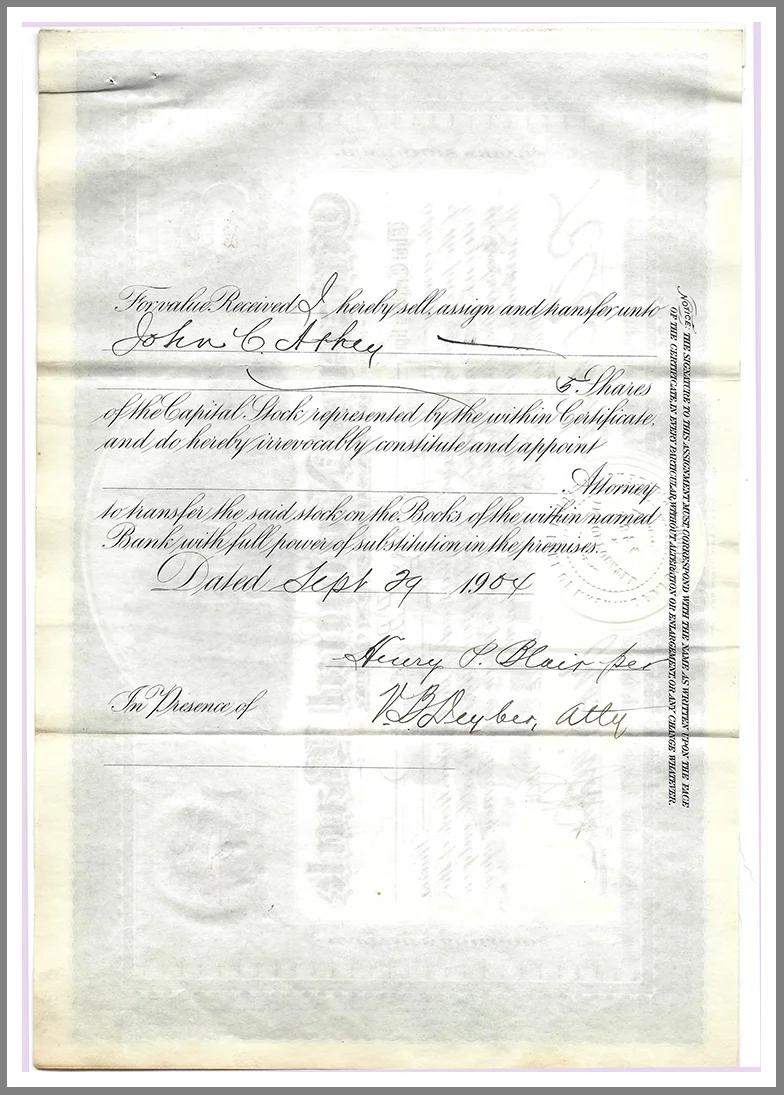 For value Received I hereby sell, assign and transfer unto
John C. Athey
5 Shares
of the Capital Stock represented by the within Certificate,
and do hereby irrevocably constitute and appoint
Attorney
to transfer the said stock on the Books of the within named
Bank with full power of substitution in the premises.
Dated Sept 29 1904
Henry P. Blair per
V. B. Deyber, Atty
In Presence of
NOTICE. THE SIGNATURE TO THIS ASSIGNMENT MUST CORRESPOND WITH THE NAME AS WRITTEN UPON THE FACE
OF THE CERTIFICATE, IN EVERY PARTICULAR, WITHOUT ALTERATION OR ENLARGEMENT, OR ANY CHANGE WHATEVER.